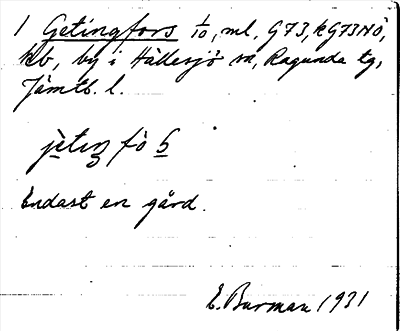 1 Getingfors 1/10, ml. G73, kG73NÖ,
kb, by i Hällesjö sn, Ragunda tg,
Jämtb. l.
Endast en gård.
E. Burman 1931